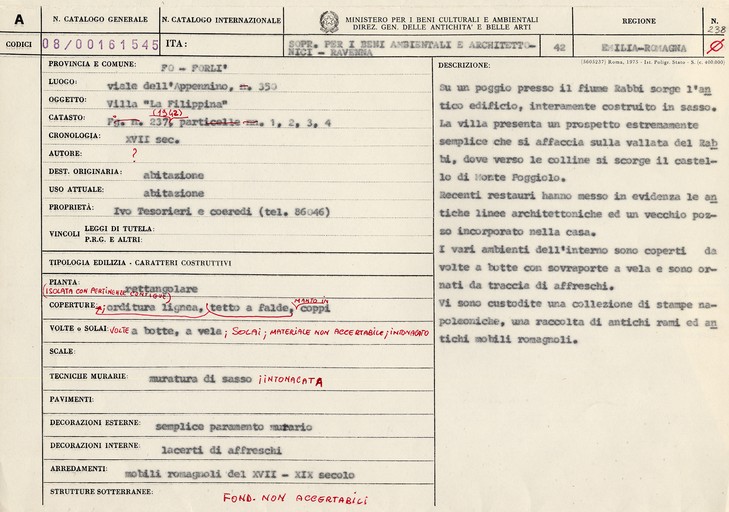 A
N. CATALOGO GENERALE
N. CATALOGO INTERNAZIONALE
MINISTERO PER I BENI CULTURALI E AMBIENTALI
DIREZ. GEN. DELLE ANTICHITA' E BELLE ARTI
REGIONE
N.
238
CODICI
08/00161545
ITA:
SOPR. PER I BENI AMBIENTALI E ARCHITETTO-
NICI - RAVENNA
42
EMILIA-ROMAGNA
PROVINCIA E COMUNE: FO - FORLI'
LUOGO: viale dell'Appennino, n. 350
OGGETTO: Villa "La Filippina"
(1942)
CATASTO: Fg. n. 237, particelle nn. 1, 2, 3, 4
CRONOLOGIA: XVII sec.
AUTORE: ?
DEST. ORIGINARIA: abitazione
USO ATTUALE: abitazione
PROPRIETÀ: Ivo Tesorieri e coeredi (tel. 86046)
VINCOLI
LEGGI DI TUTELA:
P.R.G. E ALTRI:
TIPOLOGIA EDILIZIA - CARATTERI COSTRUTTIVI
PIANTA: rettangolare
(ISOLATA CON PERTINENZE CONTIGUE)
MANTO IN
COPERTURE: orditura lignea, tetto a falde, coppi
VOLTE o SOLAI: VOLTE a botte, a vela; SOLAI; MATERIALE NON ACCERTABILE; INTONACATO
SCALE:
TECNICHE MURARIE: muratura di sasso; INTONACATA
PAVIMENTI:
DECORAZIONI ESTERNE: semplice paramento murario
DECORAZIONI INTERNE: lacerti di affreschi
ARREDAMENTI: mobili romagnoli del XVII - XIX secolo
STRUTTURE SOTTERRANEE: FOND. NON ACCERTABILI
DESCRIZIONE:
(5603237) Roma, 1975 - Ist. Poligr. Stato - S. (c. 400.000)
Su un poggio presso il fiume Rabbi sorge l'an
tico edificio, interamente costruito in sasso.
La villa presenta un prospetto estremamente
semplice che si affaccia sulla vallata del Rab
bi, dove verso le colline si scorge il castel-
lo di Monte Poggiolo.
Recenti restauri hanno messo in evidenza le an
tiche linee architettoniche ed un vecchio poz-
zo incorporato nella casa.
I vari ambienti dell'interno sono coperti da
volte a botte con sovraporte a vela e sono or-
nati da traccia di affreschi.
Vi sono custodite una collezione di stampe na-
poleoniche, una raccolta di antichi rami ed an
tichi mobili romagnoli.